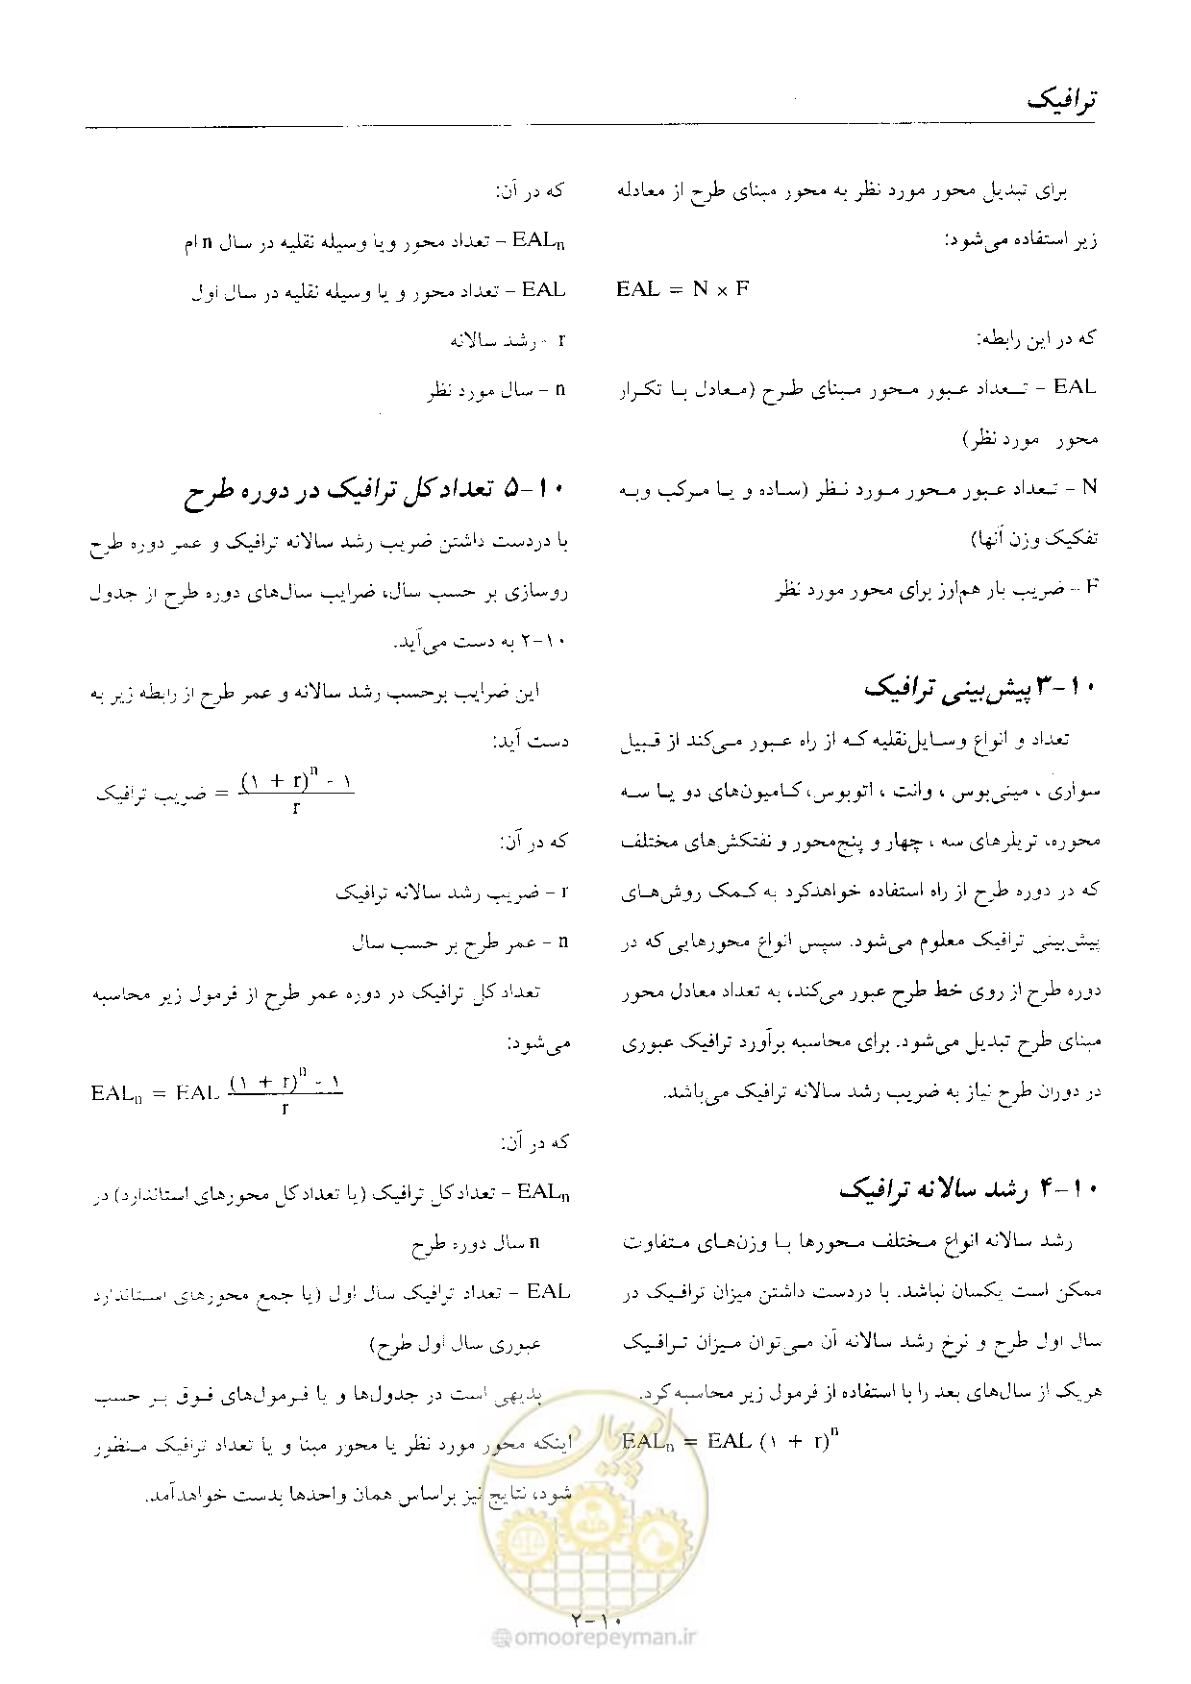 ترافیک
برای تبدیل محور مورد نظر به محور مبنای طرح از معادله
زیر استفاده می‌شود:
EAL = N × F
که در این رابطه:
EAL - تعداد عبور محور مبنای طرح (معادل با تکرار
محور مورد نظر)
N - تعداد عبور محور مورد نظر (ساده و یا مرکب وبه
تفکیک وزن آنها)
F - ضریب بار هم‌ارز برای محور مورد نظر
۱۰-۳ پیش‌بینی ترافیک
تعداد و انواع وسایل‌نقلیه که از راه عبور می‌کند از قبیل
سواری ، مینی‌بوس ، وانت ، اتوبوس، کامیون‌های دو یا سه
محوره، تریلرهای سه ، چهار و پنج‌محور و نفتکش‌های مختلف
که در دوره طرح از راه استفاده خواهدکرد به کمک روش‌های
پیش‌بینی ترافیک معلوم می‌شود. سپس انواع محورهایی که در
دوره طرح از روی خط طرح عبور می‌کند، به تعداد معادل محور
مبنای طرح تبدیل می‌شود. برای محاسبه برآورد ترافیک عبوری
در دوران طرح نیاز به ضریب رشد سالانه ترافیک می‌باشد.
۱۰-۴ رشد سالانه ترافیک
رشد سالانه انواع مختلف محورها با وزن‌های متفاوت
ممکن است یکسان نباشد. با دردست داشتن میزان ترافیک در
سال اول طرح و نرخ رشد سالانه آن می‌توان میزان ترافیک
هریک از سال‌های بعد را با استفاده از فرمول زیر محاسبه کرد.
EALₙ = EAL (۱ + r)ⁿ
که در آن:
EALₙ - تعداد محور ویا وسیله نقلیه در سال n ام
EAL - تعداد محور و یا وسیله نقلیه در سال اول
r - رشد سالانه
n - سال مورد نظر
۱۰-۵ تعداد کل ترافیک در دوره طرح
با دردست داشتن ضریب رشد سالانه ترافیک و عمر دوره طرح
روسازی بر حسب سال، ضرایب سال‌های دوره طرح از جدول
۱۰-۲ به دست می‌آید.
این ضرایب برحسب رشد سالانه و عمر طرح از رابطه زیر به
دست آید:
ضریب ترافیک = (۱ + r)ⁿ - ۱
r
که در آن:
r - ضریب رشد سالانه ترافیک
n - عمر طرح بر حسب سال
تعداد کل ترافیک در دوره عمر طرح از فرمول زیر محاسبه
می‌شود:
EALₙ = EAL (۱ + r)ⁿ - ۱
r
که در آن:
EALₙ - تعداد کل ترافیک (یا تعداد کل محورهای استاندارد) در
n سال دوره طرح
EAL - تعداد ترافیک سال اول (یا جمع محورهای استاندارد
عبوری سال اول طرح)
بدیهی است در جدول‌ها و یا فرمول‌های فوق بر حسب
اینکه محور مورد نظر یا محور مبنا و یا تعداد ترافیک منظور
شود، نتایج نیز براساس همان واحدها بدست خواهدآمد.
امور پیمان
۲-۱۰
@omoorepeyman.ir